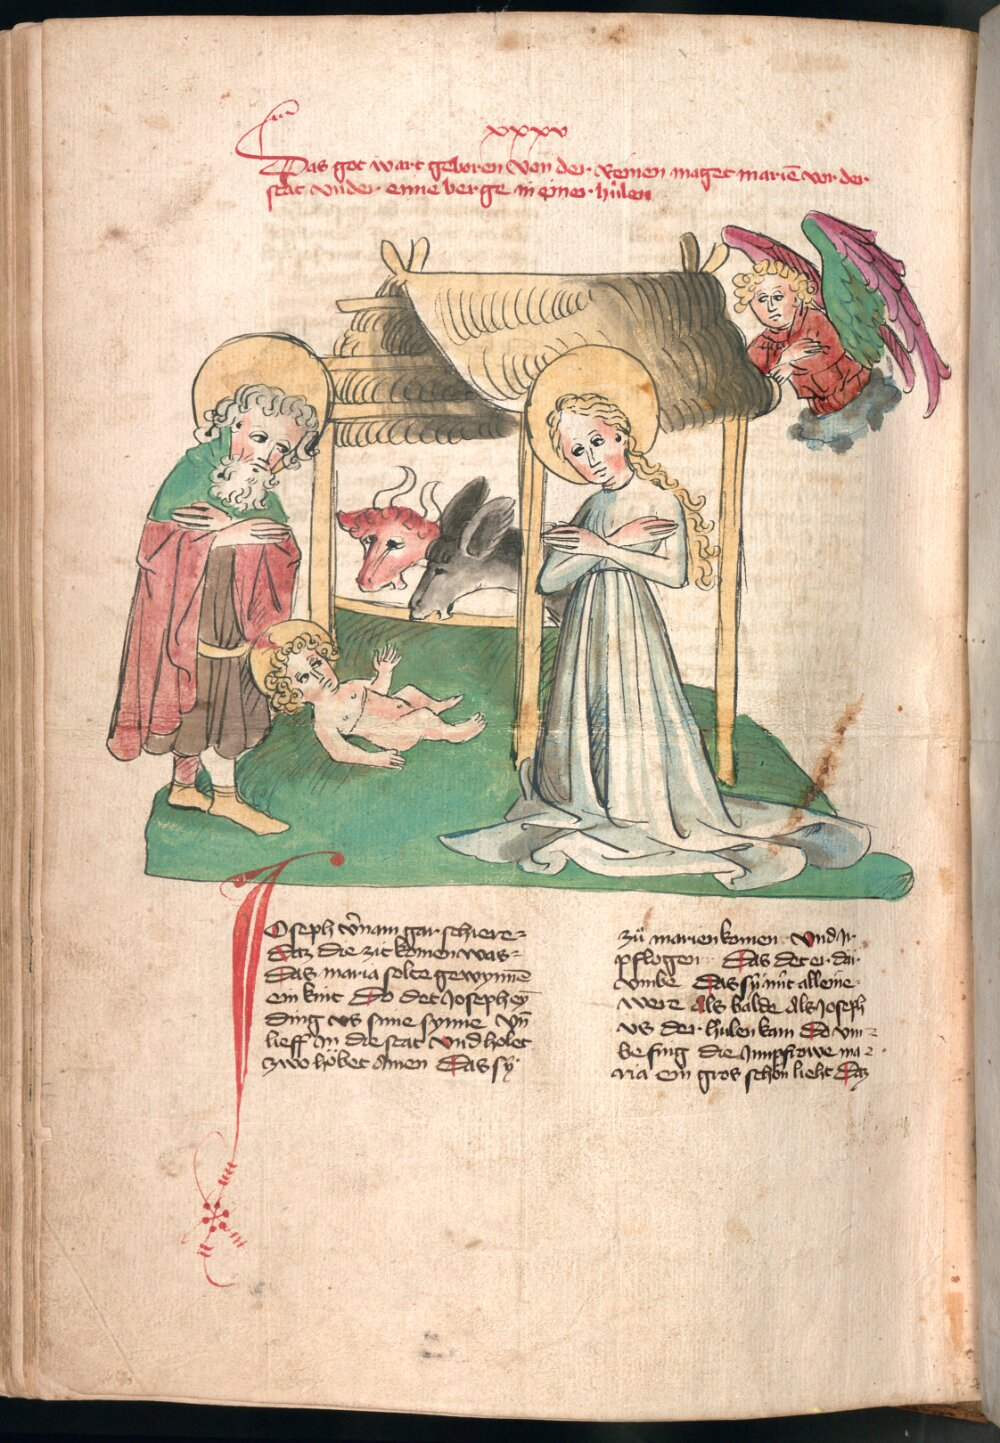 xxxv
Das got wart geboren von der Reinen maget mariē vor der
stat vnder enne berge in einer húlen
Joseph v̄nam gar schiere
daz die zit komen was
Das maria solte gewynnē
ein kint Do det Joseph ey
ding vs sime synne Vn̄
lieff in die stat Vnd holet
zwo hŏbet Amen Das sy
zů marien komen Vnd Ir
pflogen Das det er dar
vmbe Das sy nit alleine
were Als balde Als Joseph
vs der hulen kam Do vm
be fing die Jungfrowe ma
ria ein gros schŏn lieht Daz